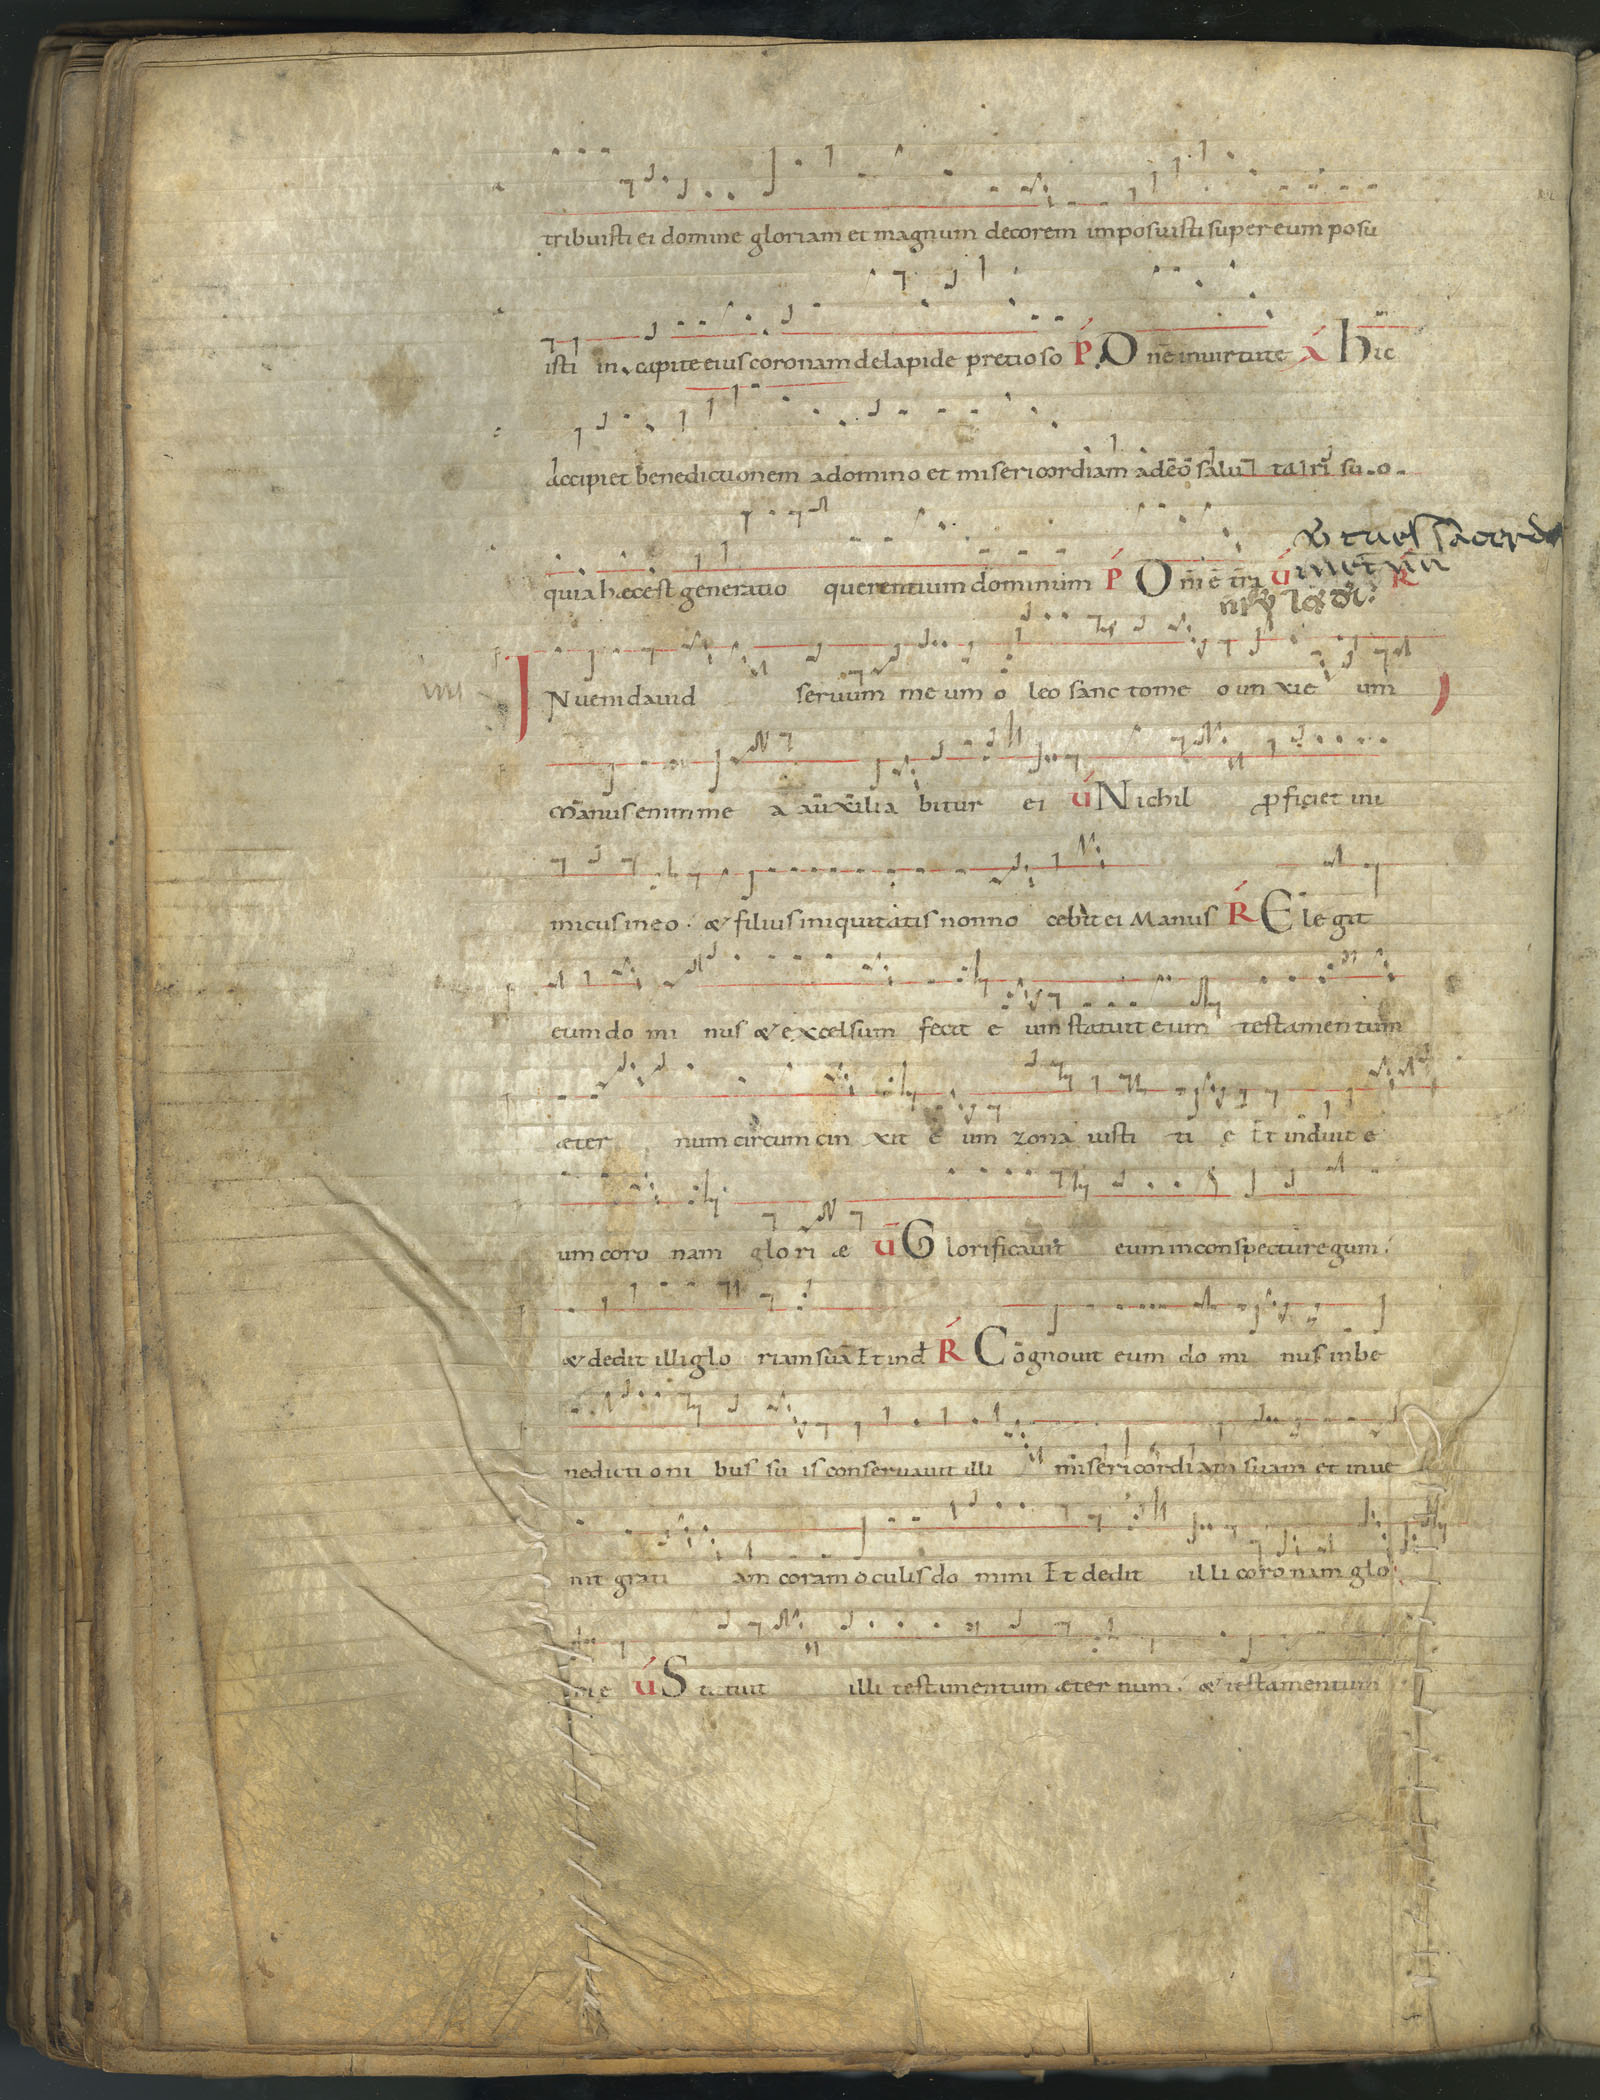 tribuisti ei domine gloriam et magnum decorem imposuisti super eum posu
isti in capite eius coronam de lapide pretioso P̄ One in uirtute A Hic
Accipiet benedictionem a domino et misericordiam a dēo salutari suo.
quia hæc est generatio querentium dominum P DNĒ Ē t̄ra Ū R̄
Inueni dauid seruum meum oleo sancto meo unxi eum
Manus enim mea auxiliabitur ei Ū Nichil ꝓficiet ini
micus in eo. & filius iniquitatis non nocebit ei Manus R̄ Elegit
eum dominus & excelsum fecit eum statuit eum testamentum
æternum circumcinxit eum zona iustitię Et induit e
um coronam gloriæ Ū Glorificauit eum in conspectu regum.
& dedit illi gloriam suā Et ind R̄ Cognouit eum dominus in be
nedictionibus suis conseruauit illi misericordiam suam et inue
nit gratiam coram oculis domini Et dedit illi coronam glo
rię Ū Statuit illi testamentum æternum. & testamentum